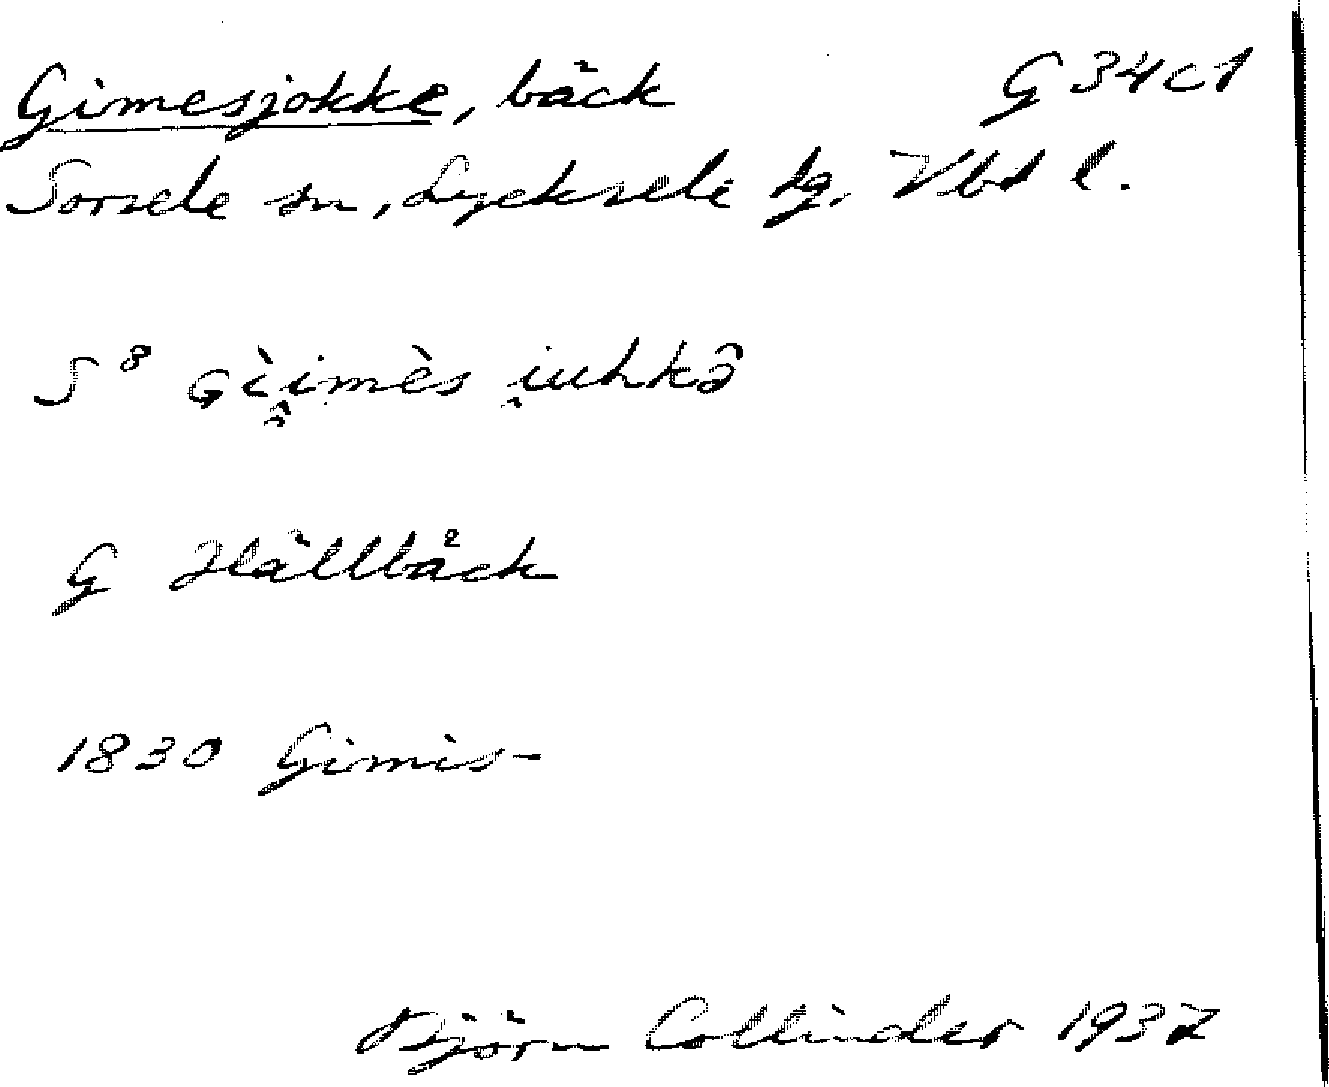 Gimesjokke, bäck G 34 c 1
Sorsele sn, Lycksele lg. Vbd l.
S⁸ Gèi̯imès i̯uhkɘ̂
G Hällbäck
1830 Gimis-
Björn Collinder 1937